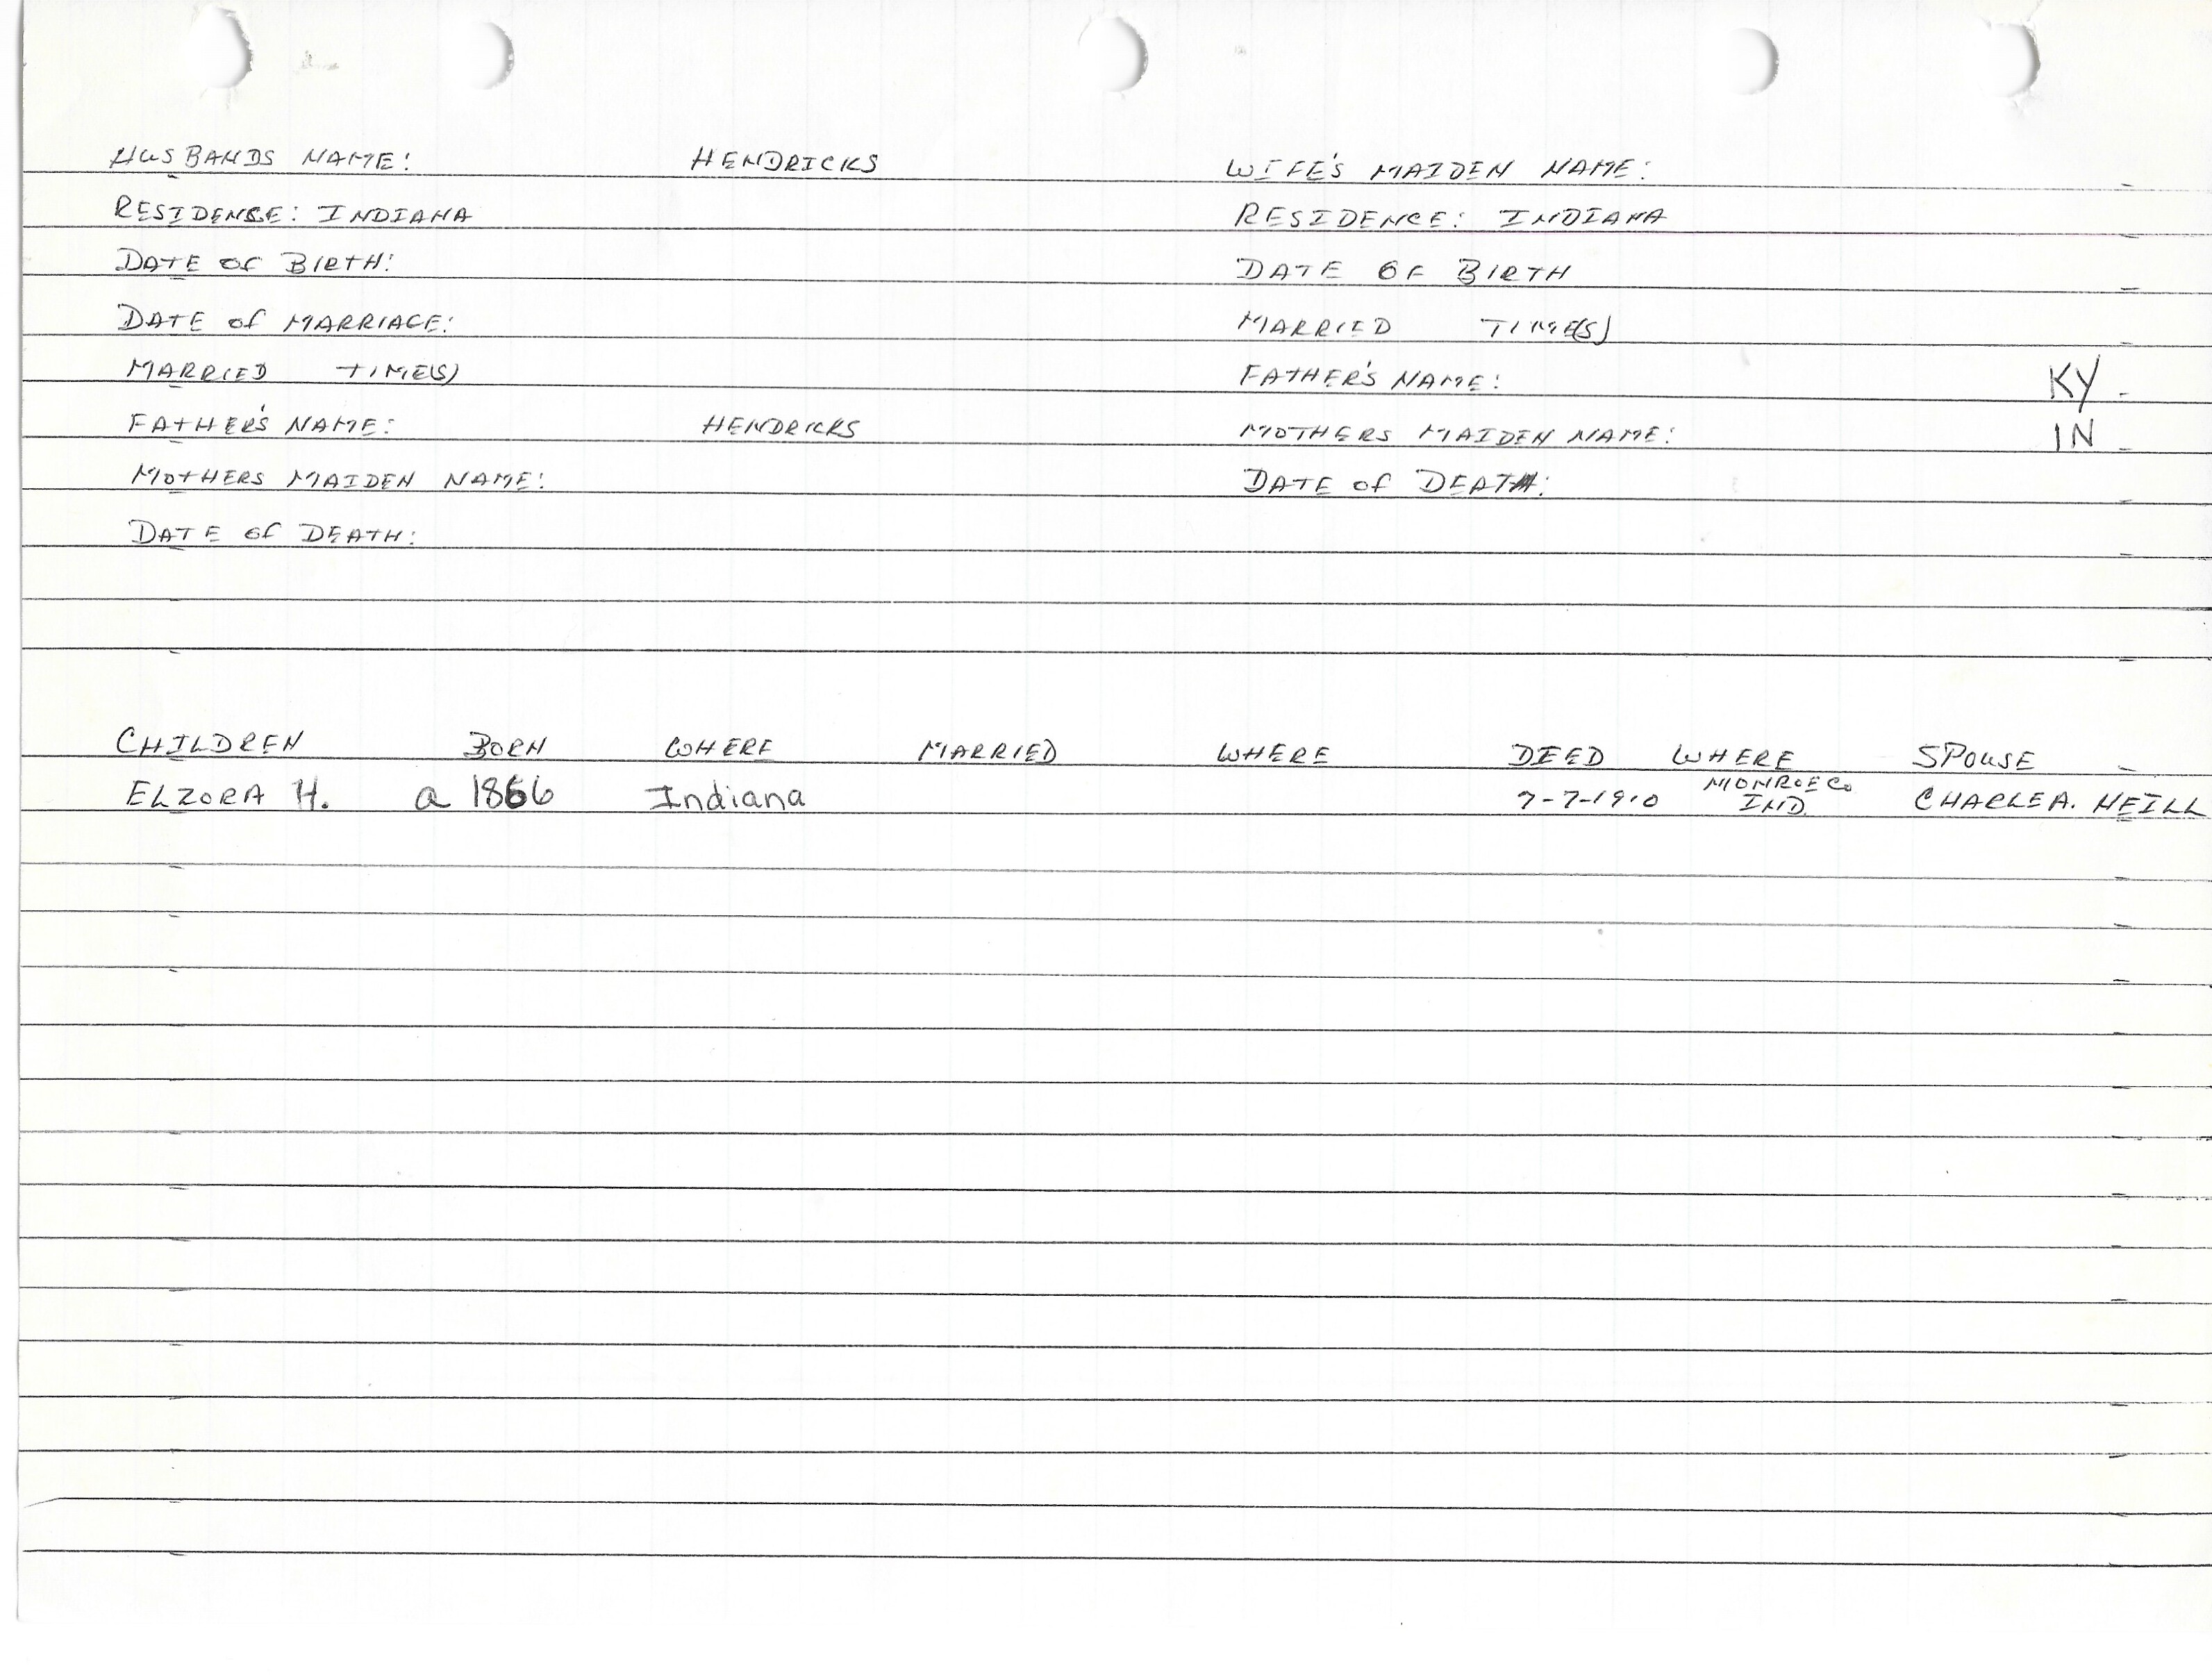 HUSBANDS NAME: HENDRICKS
RESIDENCE: INDIANA
DATE OF BIRTH:
DATE OF MARRIAGE:
MARRIED TIME(S)
FATHER'S NAME: HENDRICKS
MOTHERS MAIDEN NAME:
DATE OF DEATH:
WIFE'S MAIDEN NAME:
RESIDENCE: INDIANA
DATE OF BIRTH
MARRIED TIME(S)
FATHER'S NAME: KY
MOTHERS MAIDEN NAME: IN
DATE OF DEATH:
CHILDREN BORN WHERE MARRIED WHERE DIED WHERE SPOUSE
ELZORA H. a 1866 Indiana 7-7-1910 MONROE CO IND. CHARLE A. NEILL